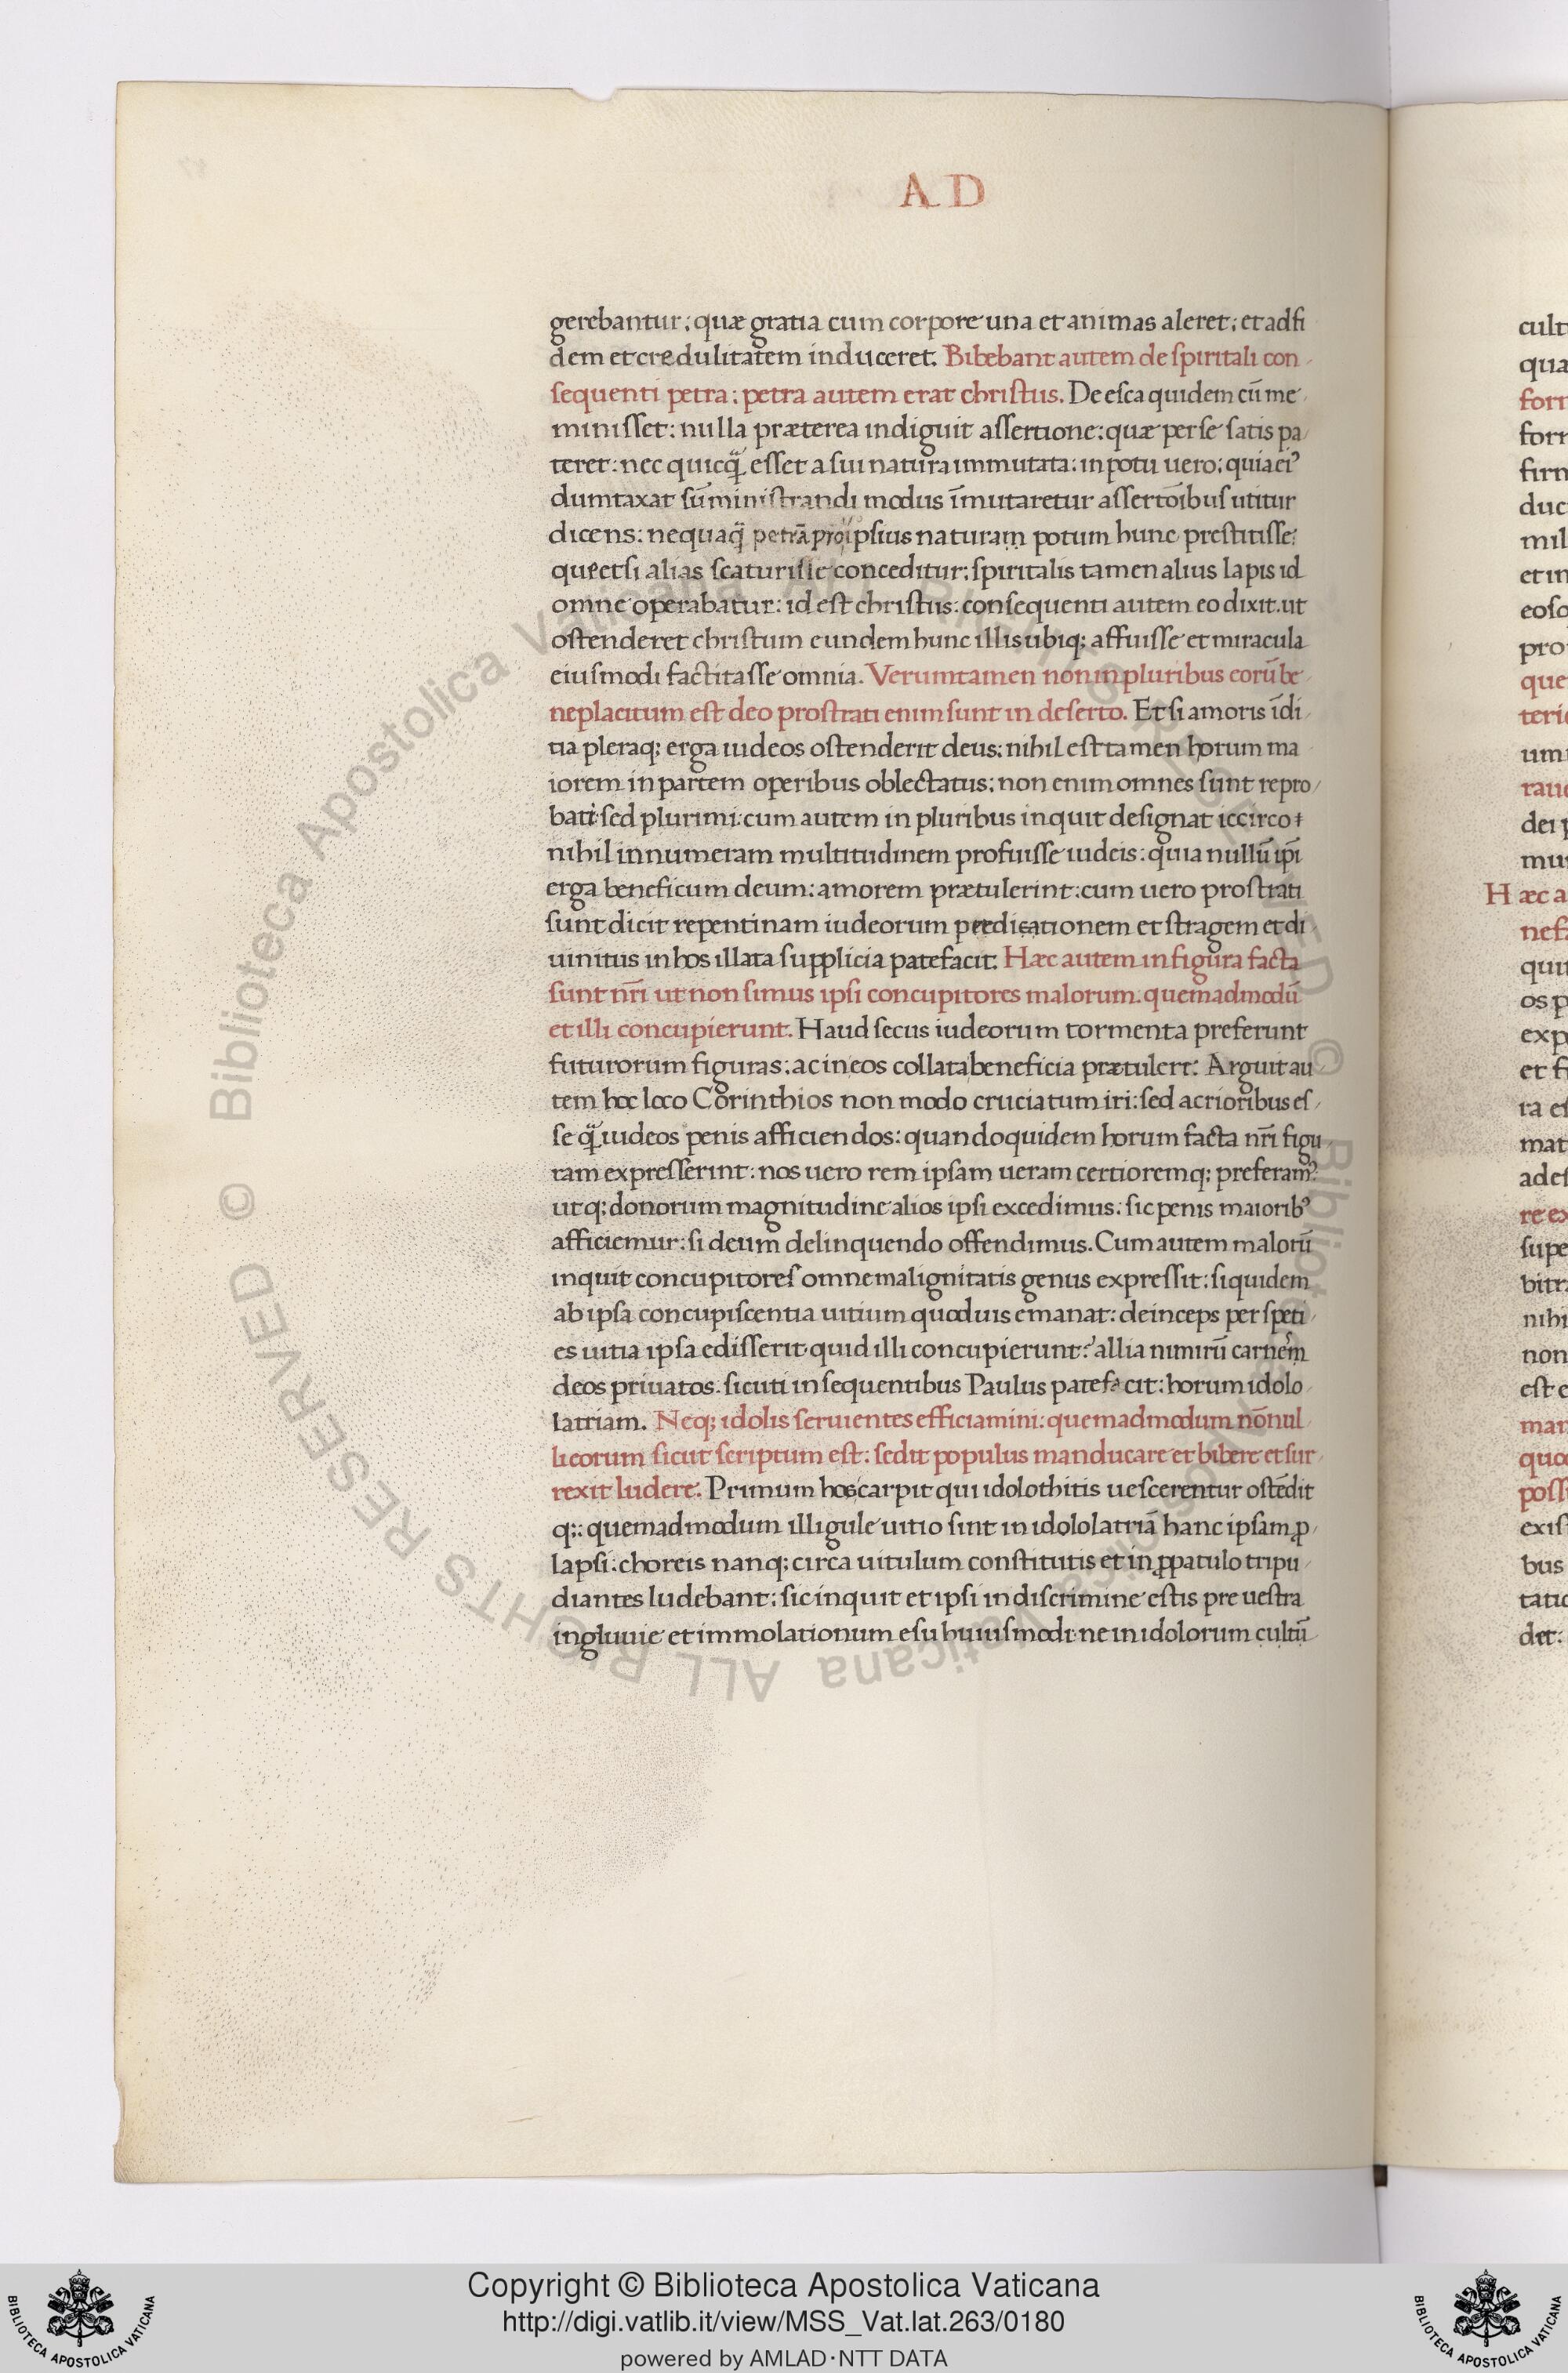 AD
gerebantur: quæ gratia cum corpore una et animas aleret: et ad fi
dem et credulitatem induceret. Bibebant autem de spiritali con
sequenti petra: petra autem erat christus. De esca quidem cū me
minisset: nulla præterea indiguit assertione: quæ per se satis pa
teret: nec quicq̃ esset a sui natura immutata: in potu uero: quia eiꝰ
dumtaxat sūministrandi modus īmutaretur assertōibus utitur
dicens: nequaq̃ petrā pro ipsius naturam potum hunc prestitisse:
que etsi alias scaturisse conceditur: spiritalis tamen alius lapis id
omne operabatur: id est christus: consequenti autem eo dixit. ut
ostenderet christum eundem hunc illis ubiq; affuisse et miracula
eiusmodi factitasse omnia. Verumtamen non in pluribus eorū be
neplacitum est deo prostrati enim sunt in deserto. Et si amoris īdi
tia pleraq; erga iudeos ostenderit deus: nihil est tamen horum ma
iorem in partem operibus oblectatus: non enim omnes sunt repro
bati: sed plurimi: cum autem in pluribus inquit designat iccirco
nihil innumeram multitudinem profuisse iudeis: quia nullū ip̄i
erga beneficum deum: amorem prætulerint: cum uero prostrati
sunt dicit repentinam iudeorum perdicationem et stragem et di
uinitus in hos illata supplicia patefacit. Hæc autem in figura facta
sunt nr̄i ut non simus ipsi concupitores malorum. quemadmodū
et illi concupierunt. Haud secus iudeorum tormenta preferunt
futurorum figuras: ac in eos collata beneficia prætulere: Arguit au
tem hoc loco Corinthios non modo cruciatum iri: sed acrioribus es
se q̃ iudeos penis afficiendos: quandoquidem horum facta nr̄i figu
ram expresserint: nos uero rem ipsam ueram certioremq; preferamꝰ
utq; donorum magnitudine alios ipsi excedimus: sic penis maioribꝰ
afficiemur: si deum delinquendo offendimus. Cum autem malorū
inquit concupitores omne malignitatis genus expressit: siquidem
ab ipsa concupiscentia uitium quoduis emanat: deinceps per speti
es uitia ipsa edisserit quid illi concupierunt? allia nimirū carnem
deos priuatos. sicuti in sequentibus Paulus patefacit: horum idolo
latriam. Neq; idolis seruientes efficiamini: quemadmodum nōnul
li eorum sicut scriptum est: sedit populus manducare et bibere et sur
rexit ludere. Primum hos carpit qui idolothitis uescerentur ostēdit
q;: quemadmodum illi gule uitio sint in idololatriā hanc ipsam ꝓ
lapsi: choreis nanq; circa uitulum constitutis et in ꝓpatulo tripu
diantes ludebant: sic inquit et ipsi in discrimine estis pre uestra
ingluuie et immolationum esu huiusmodi ne in idolorum cultū
Copyright © Biblioteca Apostolica Vaticana
http://digi.vatlib.it/view/MSS_Vat.lat.263/0180
powered by AMLAD·NTT DATA